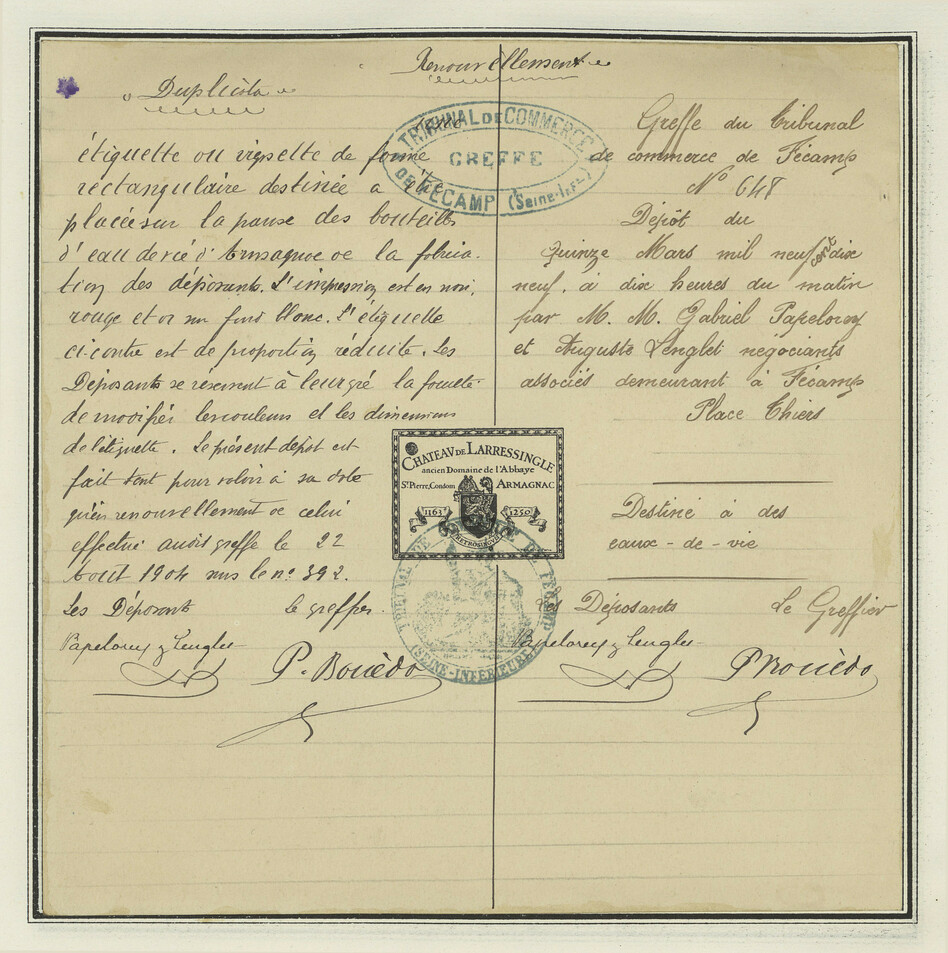 Renouvellement
Duplicata
étiquette ou vignette de forme
rectangulaire destinée a être
placée sur la panse des bouteilles
d'eau de vie d'Armagnac de la fabrica-
tion des déposants. L'impression est en noir,
rouge et or sur fond blanc. L'étiquette
ci-contre est de proportion réduite. Les
Déposants se réservent à leur gré la faculté
de modifier les couleurs et les dimensions
de l'étiquette. Le présent dépôt est
fait tant pour valoir à sa date
qu'en renouvellement de celui
effectué audit greffe le 22
Aout 1904 sous le no. 392.
Les Déposants Le greffier
Papelorey & Lenglet
P. Bouëdo
TRIBUNAL DE COMMERCE
GREFFE
DE FÉCAMP (Seine-Infre)
Greffe du Tribunal
de commerce de Fécamp
No 648
Dépôt du
Quinze Mars mil neuf cent dix
neuf, à dix heures du matin
par M. M. Gabriel Papelorey
et Auguste Lenglet négociants
associés demeurant à Fécamp
Place Thiers
CHATEAV DE LARRESSINGLE
ancien Domaine de l'Abbaye
St Pierre, Condom ARMAGNAC
1163 1250
Destiné à des
eaux-de-vie
Les Déposants Le Greffier
Papelorey & Lenglet
P Bouëdo
TRIBUNAL DE COMMERCE DE FECAMP
(SEINE-INFERIEURE)